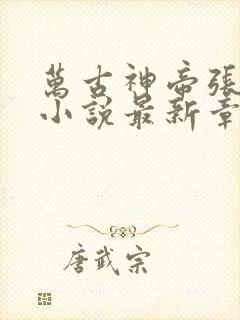 萬古神帝張
小說最新章
唐武宗